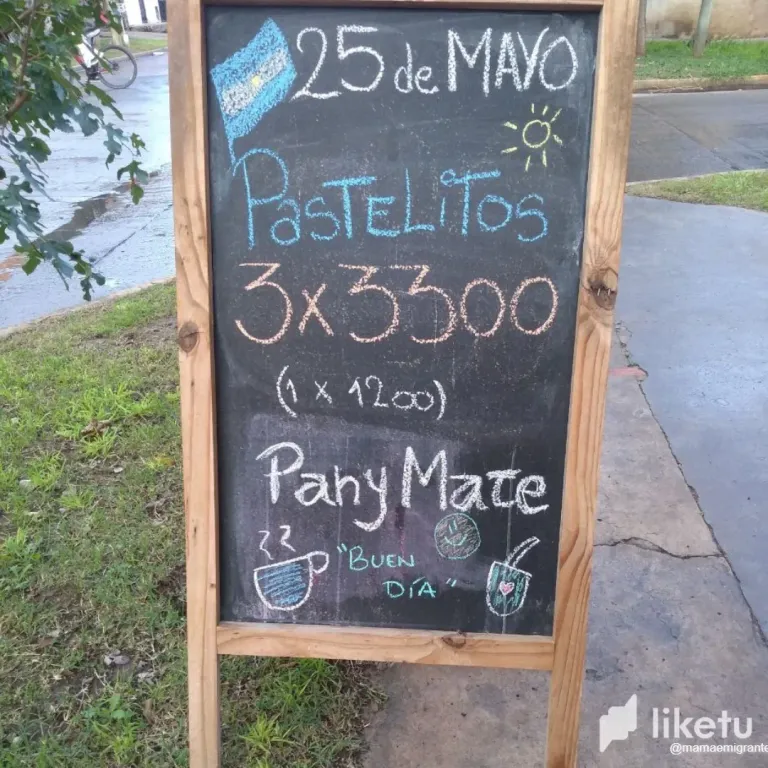 25 de MAYO
PASTELITOS
3 x 3300
(1 x 1200)
Pany Mate
"BUEN
DÍA"
liketu
@mamaemigrante